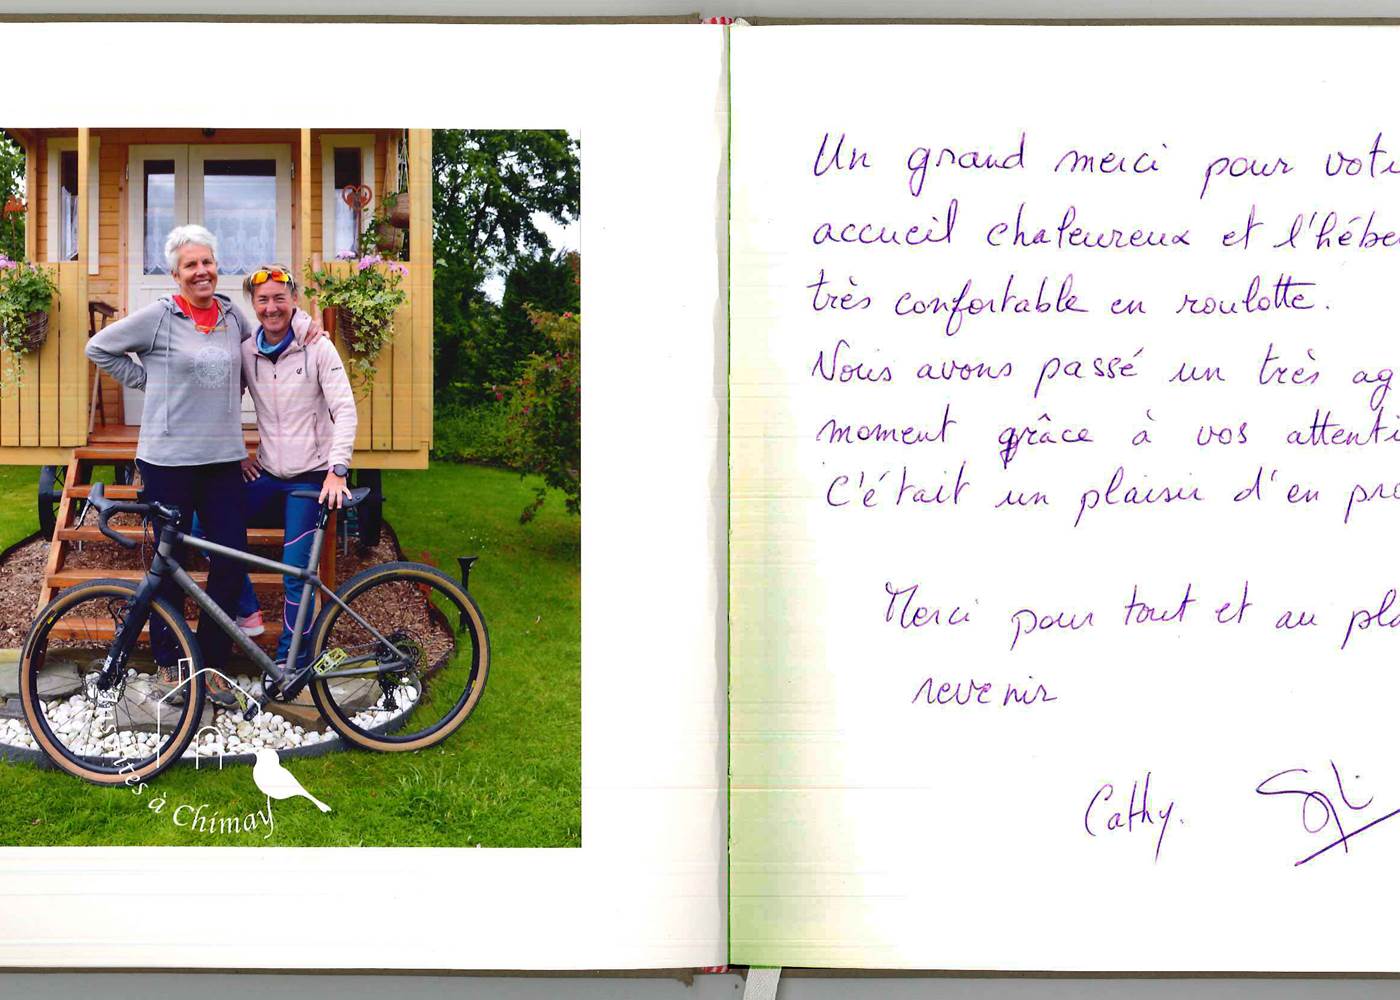 à Chimay
Un grand merci pour votr
accueil chaleureux et l'hébe
très confortable en roulotte.
Nous avons passé un très ag
moment grâce à vos attenti
C'était un plaisir d'en pro
Merci pour tout et au pla
revenir
Cathy.